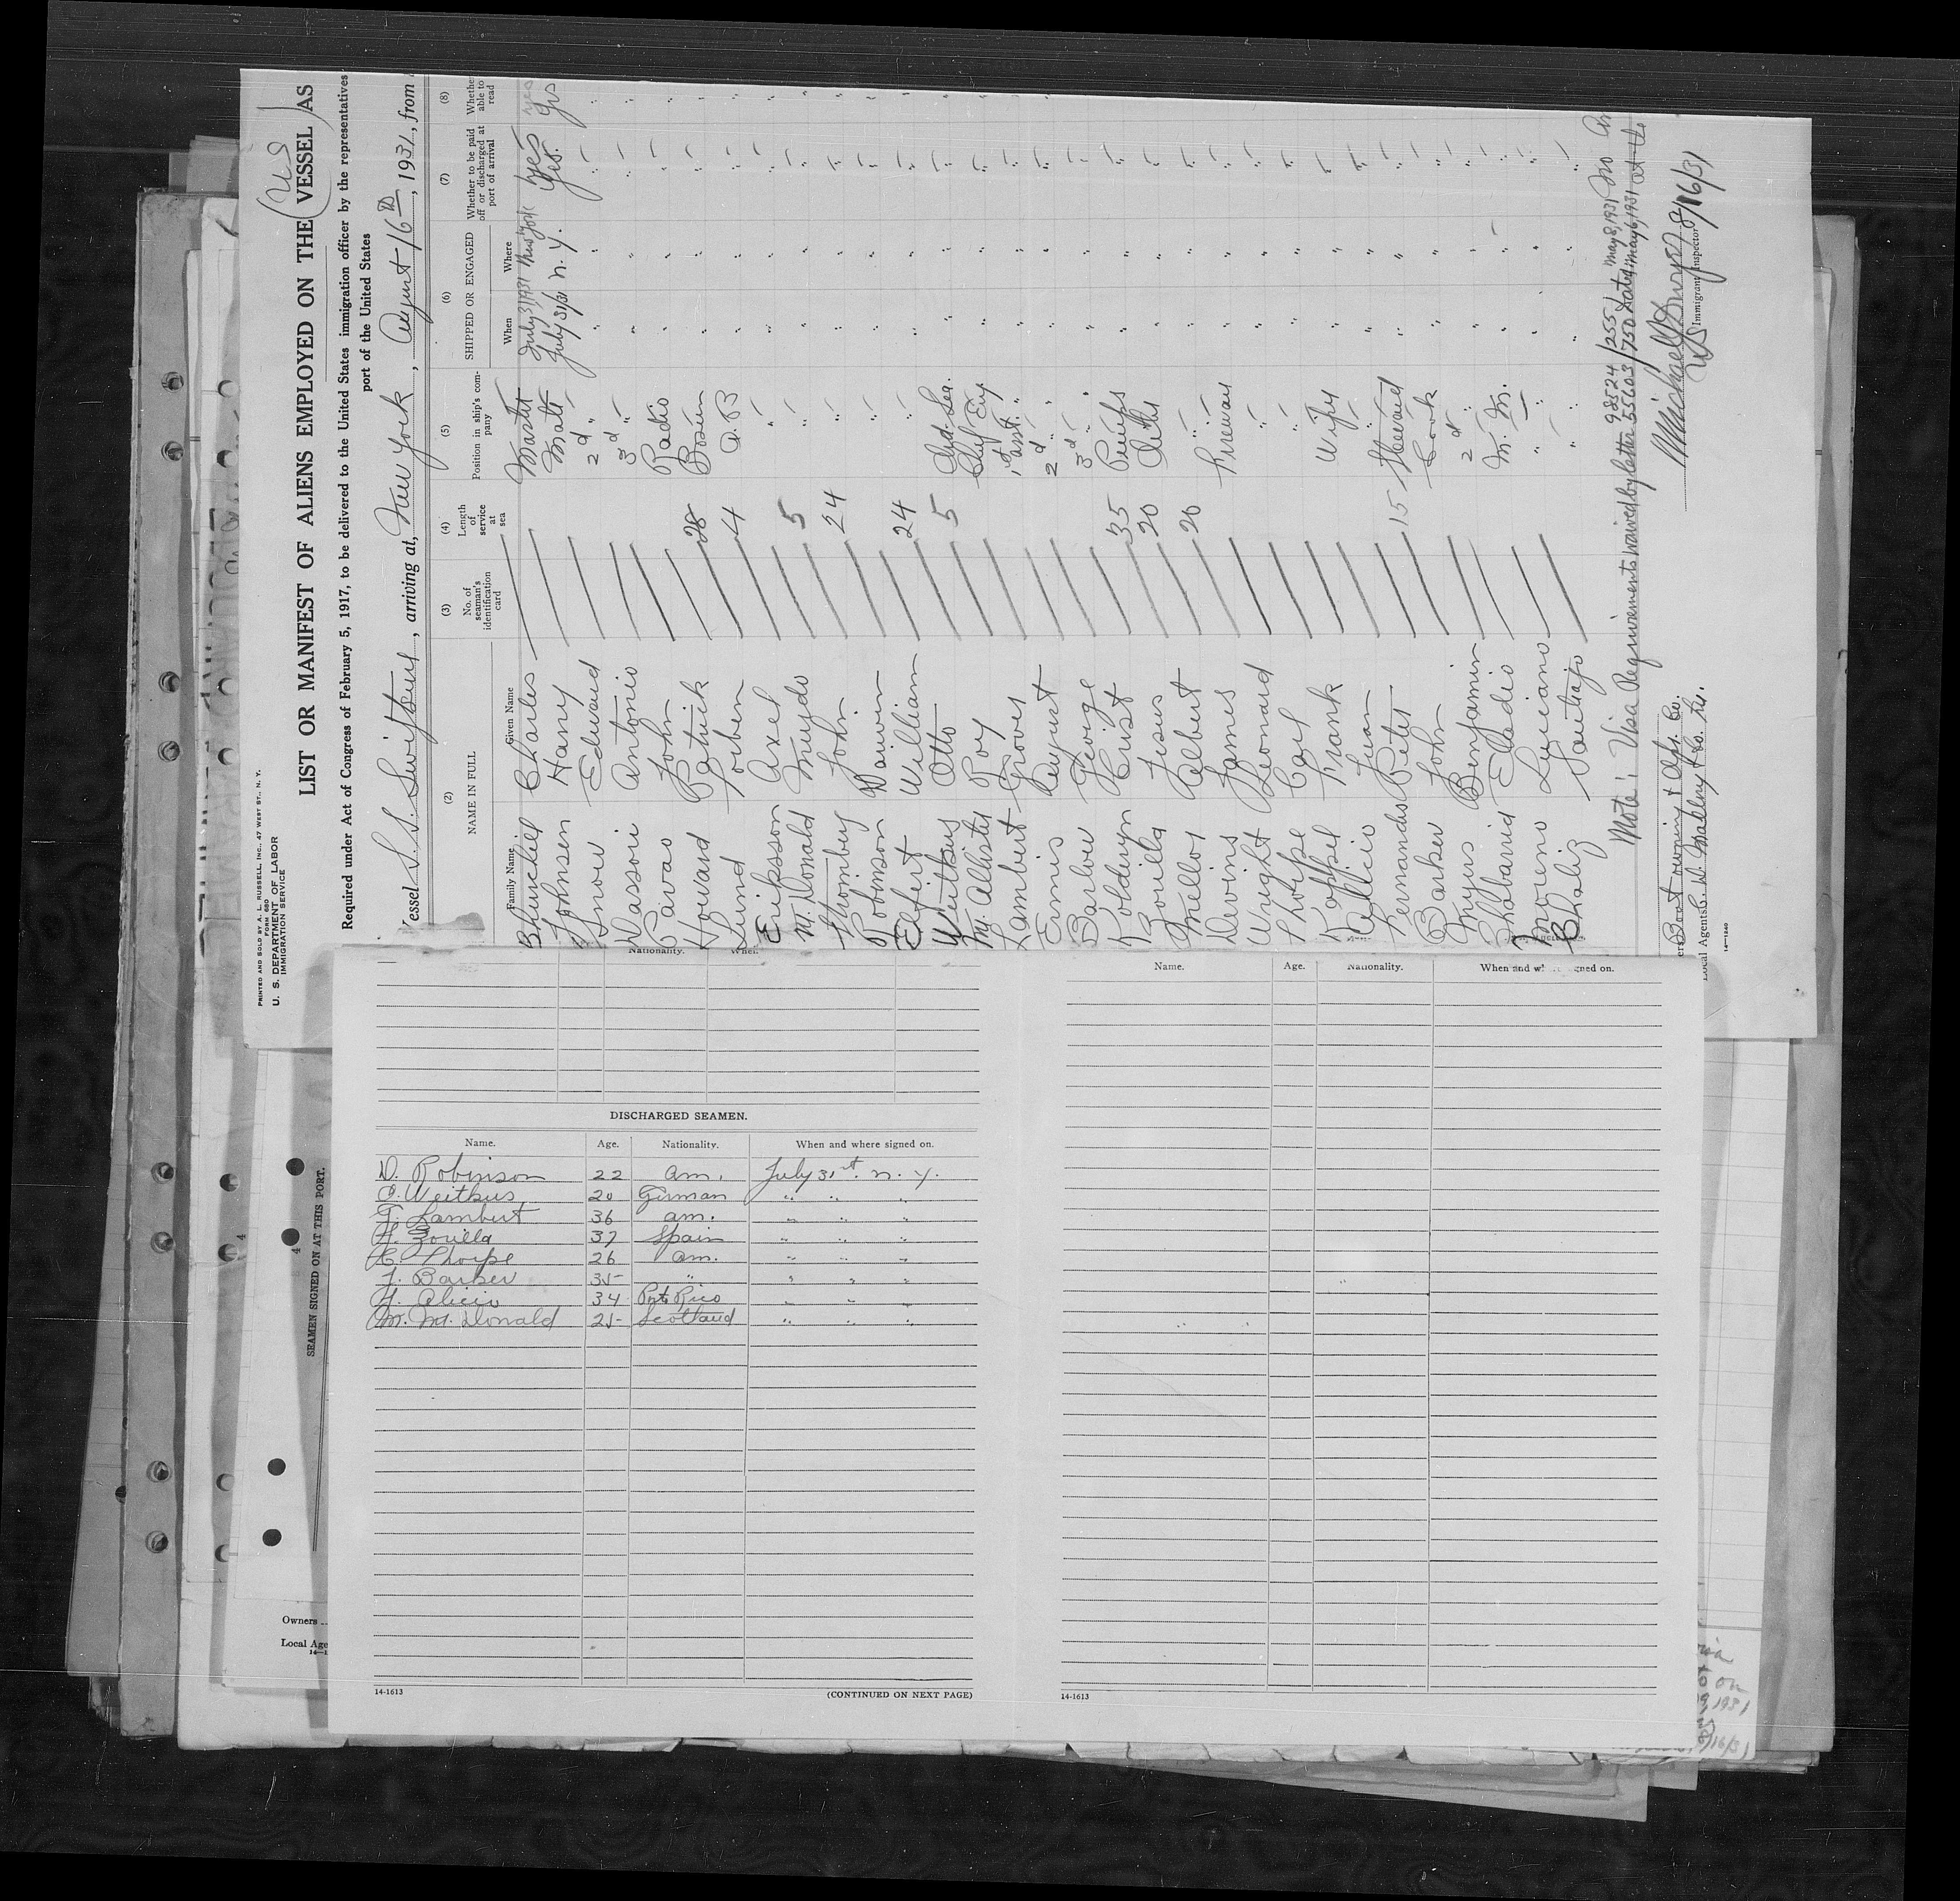 PRINTED AND SOLD BY A. L. RUSSELL, INC., 47 WEST ST., N. Y.
FORM 680
U. S. DEPARTMENT OF LABOR
IMMIGRATION SERVICE
(US)
LIST OR MANIFEST OF ALIENS EMPLOYED ON THE VESSEL AS
Required under Act of Congress of February 5, 1917, to be delivered to the United States immigration officer by the representatives
port of the United States
Vessel S.S. , arriving at, New York, August 16th, 1931, from
(2) (3) (4) (5) (6) (7) (8)
NAME IN FULL No. of seaman's identification card Length of service at sea Position in ship's company SHIPPED OR ENGAGED Whether to be paid off or discharged at port of arrival Whether able to read
Family Name Given Name When Where
Charles Master July 31/1931 New York yes yes
Johnsen Harry Mate July 31/31 N. Y. Yes. Yes
Snow Edward 2d " " " " "
Antonio 3d " " " " "
Pavao John Radio " " " "
Howard Patrick 28 Bosun " " " "
Lund Torben 4 A. B " " " "
Eriksson Axel " " " " "
Mc Donald Murdo 5 " " " " "
Thornburg John 24 " " " " "
Robinson Darwin " " " " "
Elfert William 24 " " " " "
Weitkus Otto 5 Ord. Sea. " " " "
Mc Alister Roy Chief Eng " " " "
Lambert Grover 1st Asst. " " " "
Ennis August 2d " " " " "
Barlow George 3d " " " "
Koldewyn Crist 35 Pumps " " "
Zorilla Jesus 20 Oiler " " "
Mellor Albert 20 " " " "
Devins James Fireman " " "
Wright Leonard " " " "
Thorpe Carl " " " "
Kappel Frank Wiper " " "
Allicio Juan " " " "
Fernandes Peter 15 Steward " " "
Barker John Cook " " "
Benjamin 2d " " " "
Eladio M. M. " "
Moreno Luciano " " " "
Santiago " " " "
Note: Visa Requirements waived by letter 98524/255 May 8, 1931 No
55603/750 Dated May 6, 1931 at the
Michael 8/16/31
US Immigrant Inspector
Local Agents C. D. Mallory & Co. Inc.
14—1240
Nationality. When
Name. Age. Nationality. When and where signed on.
DISCHARGED SEAMEN.
Name. Age. Nationality. When and where signed on.
D. Robinson 22 Am. July 31st. N. Y.
O. Weitkus 20 German " " "
G. Lambert 36 Am. " " "
J. Zorilla 37 Spain " " "
C. Thorpe 26 Am. " " "
J. Barker 35 " " " "
J. Alicio 34 Porto Rico " " "
M. Mc. Donald 25 Scotland " " "
14-1613
(CONTINUED ON NEXT PAGE)
14-1613
SEAMEN SIGNED ON AT THIS PORT.
4
4
Owners
Local Age
on
1931
16/31